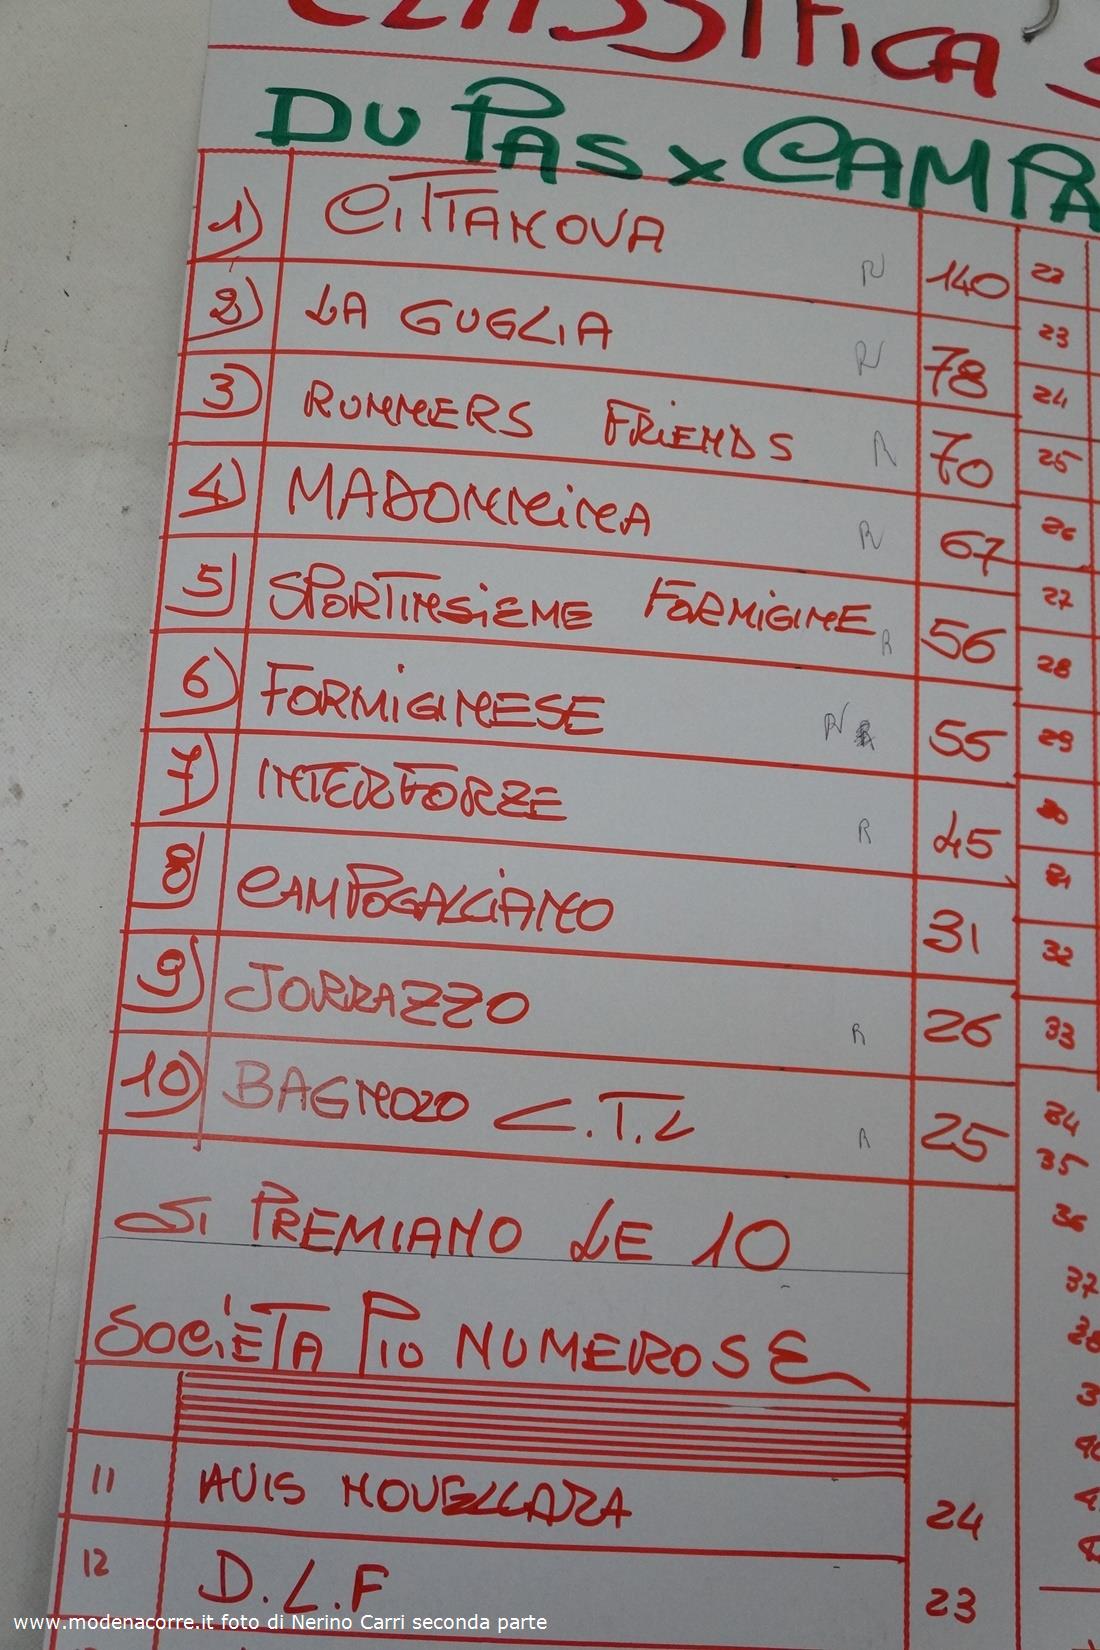 CLASSIFICA
DU PAS x CAMPA
1) CITTANOVA R 140
2) LA GUGLIA R 78
3) RUNNERS FRIENDS R 70
4) MADONNINA R 67
5) SPORTINSIEME FORMIGINE R 56
6) FORMIGINESE R 55
7) INTERFORZE R 45
8) CAMPOGALLIANO 31
9) JORRAZZO R 26
10) BAGNOLO C.T.L R 25
SI PREMIANO LE 10
SOCIETA PIU NUMEROSE
11 AVIS NOVELLARA 24
12 D.L.F 23
22
23
24
25
26
27
28
29
30
31
32
33
34
35
36
37
www.modenacorre.it foto di Nerino Carri seconda parte